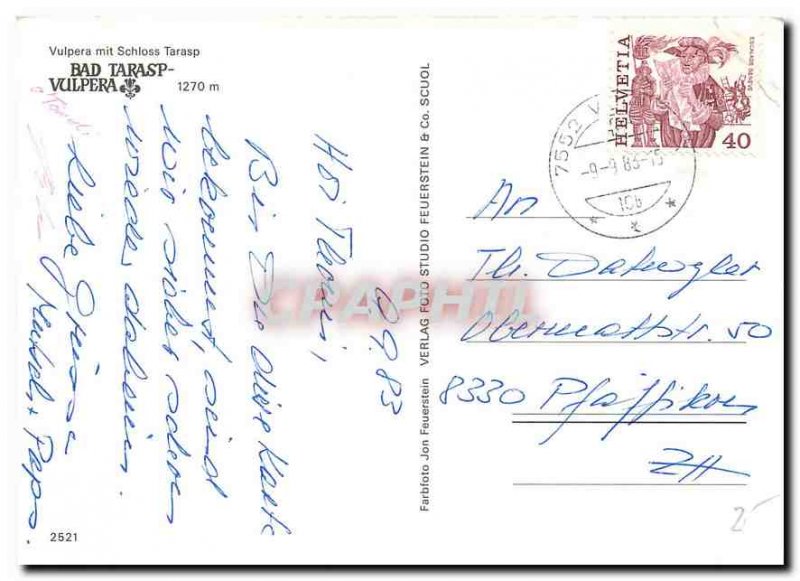 Vulpera mit Schloss Tarasp
BAD TARASP-
VULPERA
1270 m
9.9.83
Hoi Thomi,
Bis Du diese Karte
bekommst, sind
wir sicher schon
wieder daheim.
Liebe Grüsse
+ Paps.
2521
Farbfoto Jon Feuerstein VERLAG FOTO STUDIO FEUERSTEIN & Co. SCUOL
HELVETIA
ESCALADE GENÈVE
40
7552 V
-9-9.83-15
10b
An
Th. Dätwyler
Obermattstr. 50
8330 Pfäffikon
ZH
CRAPHIL
25